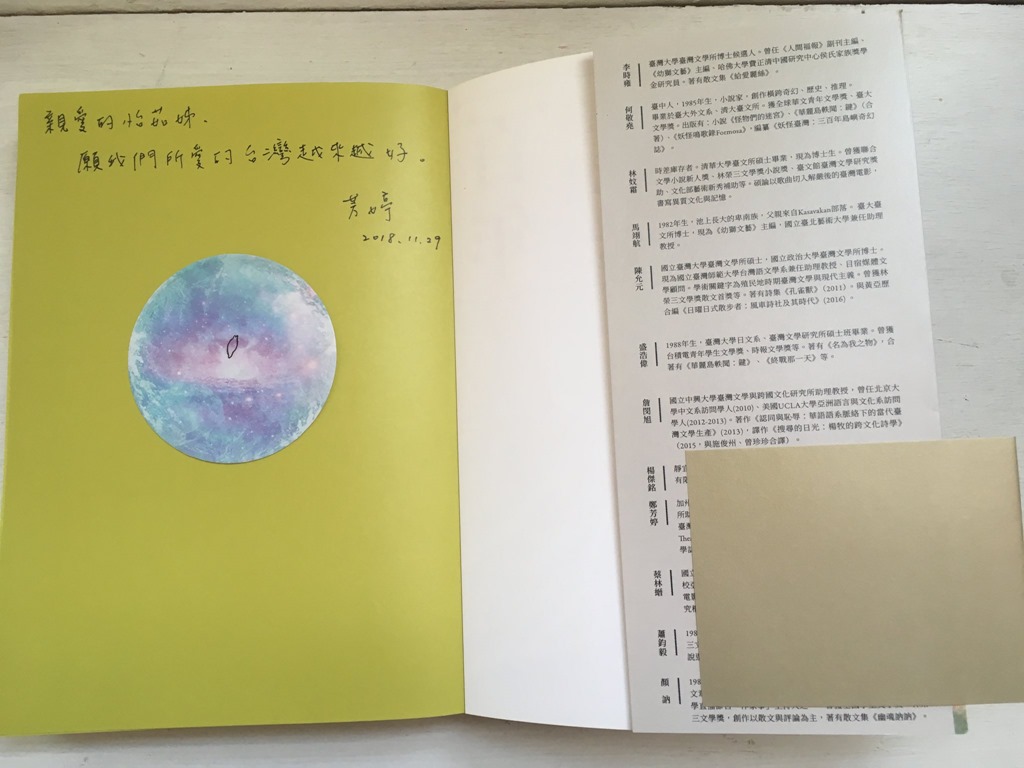 親愛的怡茹姊.
願我們所愛的台灣越來越好。
芳婷
2018.11.29
李時雍
臺灣大學臺灣文學所博士候選人。曾任《人間福報》副刊主編、
《幼獅文藝》主編、哈佛大學費正清中國研究中心侯氏家族獎學
金研究員。著有散文集《給愛麗絲》。
何敬堯
臺中人,1985年生,小說家。創作橫跨奇幻、歷史、推理。
畢業於臺大外文系、清大臺文所。獲全球華文青年文學獎、臺大
文學獎。出版有:小說《怪物們的迷宮》、《華麗島軼聞:鍵》(合
著)、《妖怪鳴歌錄Formosa》,編纂《妖怪臺灣:三百年島嶼奇幻
誌》。
林妏霜
時差庫存者。清華大學臺文所碩士畢業,現為博士生。曾獲聯合
文學小說新人獎、林榮三文學獎小說獎、臺文館臺灣文學研究獎
助、文化部藝術新秀補助等。碩論以歌曲切入解嚴後的臺灣電影,
書寫異質文化與記憶。
馬翊航
1982年生,池上長大的卑南族,父親來自Kasavakan部落。臺大臺
文所博士,現為《幼獅文藝》主編,國立臺北藝術大學兼任助理
教授。
陳允元
國立臺灣大學臺灣文學所碩士,國立政治大學臺灣文學所博士。
現為國立臺灣師範大學台灣語文學系兼任助理教授、目宿媒體文
學顧問。學術關鍵字為殖民地時期臺灣文學與現代主義。曾獲林
榮三文學獎散文首獎等。著有詩集《孔雀獸》(2011)。與黃亞歷
合編《日曜日式散步者:風車詩社及其時代》(2016)。
盛浩偉
1988年生,臺灣大學日文系、臺灣文學研究所碩士班畢業。曾獲
台積電青年學生文學獎、時報文學獎等。著有《名為我之物》,合
著有《華麗島軼聞:鍵》、《終戰那一天》等。
詹閔旭
國立中興大學臺灣文學與跨國文化研究所助理教授,曾任北京大
學中文系訪問學人(2010)、美國UCLA大學亞洲語言與文化系訪問
學人(2012-2013)。著作《認同與恥辱:華語語系脈絡下的當代臺
灣文學生產》(2013),譯作《搜尋的日光:楊牧的跨文化詩學》
(2015,與施俊州、曾珍珍合譯)。
楊傑銘
靜宜
有限
鄭芳婷
加州
所助
臺灣
The
學誌
蔡林縉
國立
校亞
電影
究相
蕭鈞毅
198
三文
說選
顏訥
198
文
三文學獎,創作以散文與評論為主,著有散文集《幽魂訥訥》。